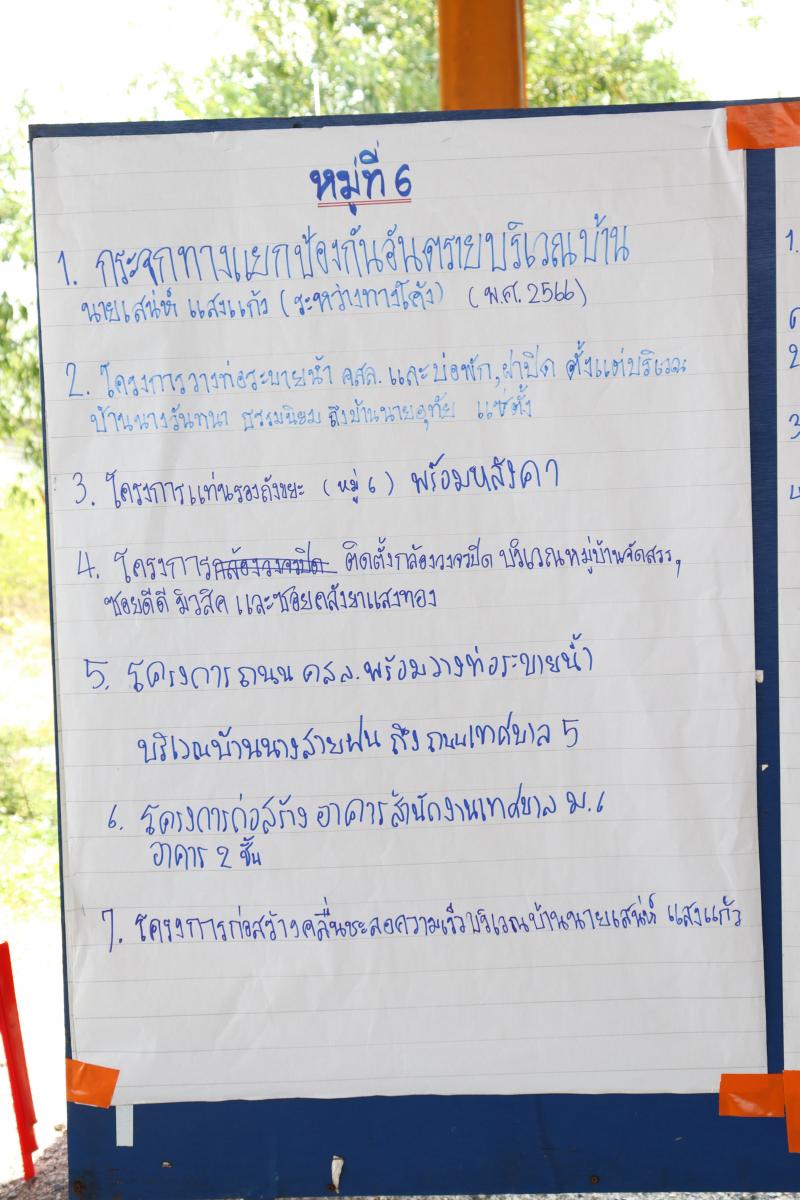 หมู่ที่ 6
1. กระจกทางแยกป้องกันอันตรายบริเวณบ้าน
นายเสน่ห์ แสงแก้ว (ระหว่างทางโค้ง) (พ.ศ. 2566)
2. โครงการวางท่อระบายน้ำ คสล. และบ่อพัก, ฝาปิด ตั้งแต่บริเวณ
บ้านนางวันทนา ธรรมนิยม ถึงบ้านนายอุทัย แซ่ตั้ง
3. โครงการแท่นรองถังขยะ (หมู่ 6) พร้อมหลังคา
4. โครงการกล้องวงจรปิด ติดตั้งกล้องวงจรปิด บริเวณหมู่บ้านจัดสรร,
ซอยดีดี มิวสิค และซอยคลังยาแสงทอง
5. โครงการถนน คสล. พร้อมวางท่อระบายน้ำ
บริเวณบ้านนางสายฝน ถึง ถนนเทศบาล 5
6. โครงการก่อสร้าง อาคารสำนักงานเทศบาล ม.6
อาคาร 2 ชั้น
7. โครงการก่อสร้างคลื่นชะลอความเร็วบริเวณบ้านนายเสน่ห์ แสงแก้ว
1.
2
3